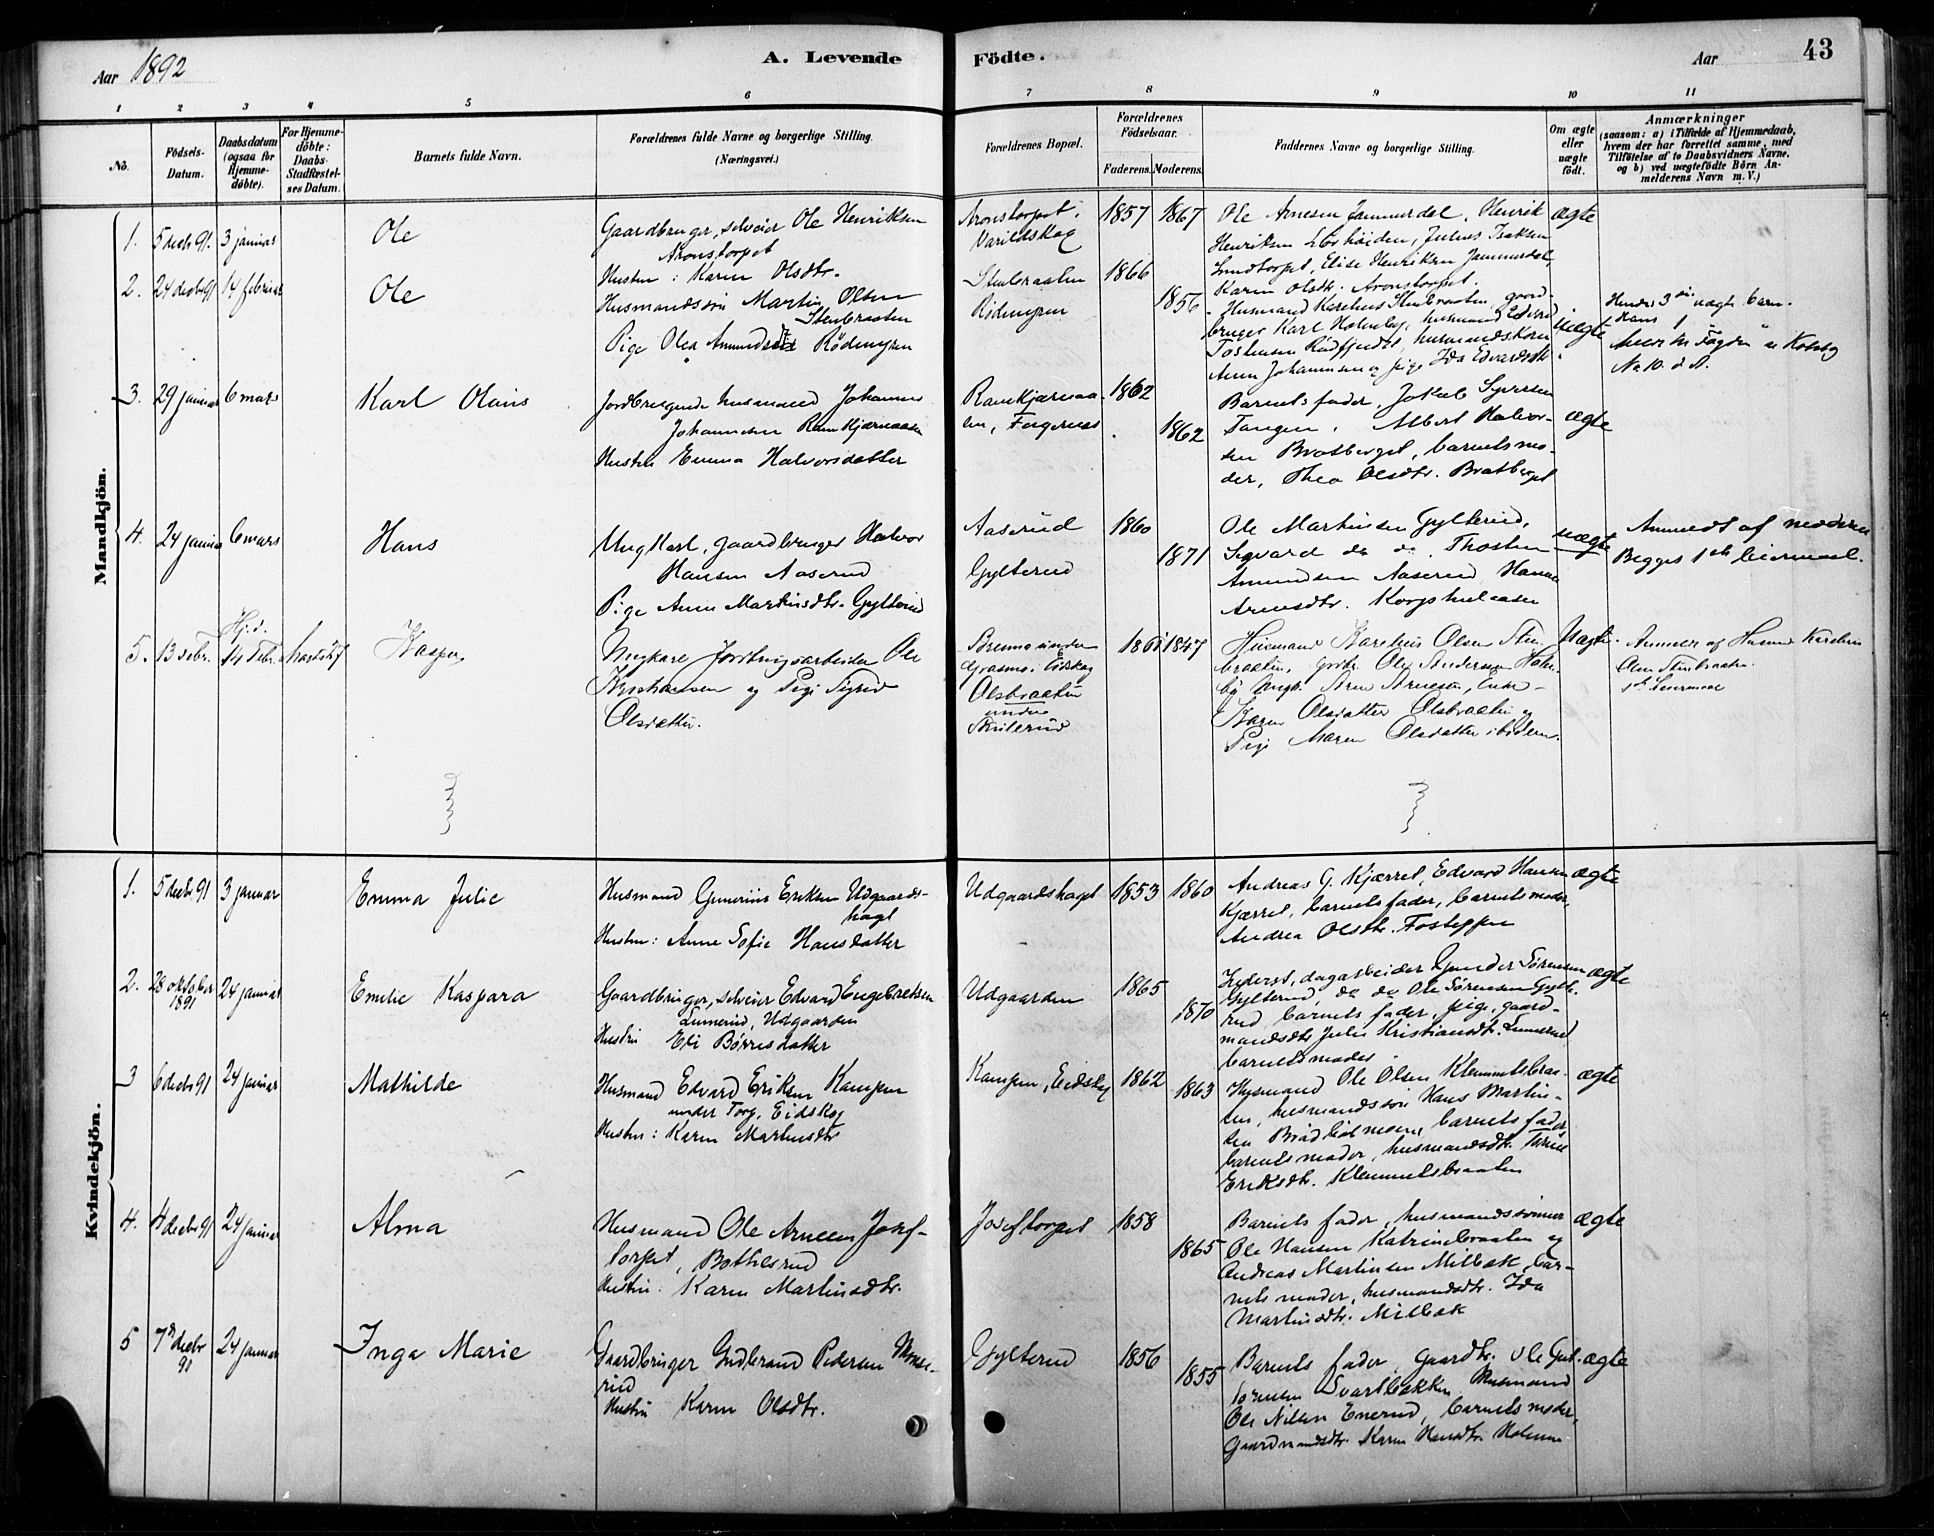 Aar 1892
A. Levende
Födte.
Aar
43
1 2 3 4 5 6 7 8 9 10 11
No.
Födsels-Datum.
Daabsdatum (ogsaa for Hjemme-döbte).
For Hjemme-döbte: Daabs-Stadfæstel-ses Datum.
Barnets fulde Navn.
Forældrenes fulde Navne og borgerlige Stilling. (Næringsvei.)
Forældrenes Bopæl.
Forældrenes Födselsaar.
Faderens. Moderens.
Faddernes Navne og borgerlige Stilling.
Om ægte eller uægte födt.
Anmærkninger
(saasom: a) i Tilfælde af Hjemmedaab,
hvem der har forrettet samme, med
Tilföielse af to Daabsvidners Navne,
og b) ved uægtefödte Börn An-
melderens Navn m. V.)
Mandkjön.
1. 5 decb 91. 3 januar
Ole
Gaardbruger, selveier Ole Henriksen
Aronstorpet
Hustru: Karen Olsdtr.
Aronstorpet,
Varildskog
1857 1867
Ole Arnesen Jammerdal, Henrik
Henriksen
Julius Isaksen
Elise Henriksen Jammerdal,
Karen Olsdtr. Aronstorpet.
ægte
2. 24 decb 91 14 februar
Ole
Husmandssön Martin Olsen
Stenbraaten
Pige Olea Amundsdtr Rödmyren
Stenbraaten
Rödmyren
1866
1856
Husmand Karelius Stenbraaten, gaard-
bruger Karl Holmby, husmand Edvard
husmandskone
Anne Johannesen og pige Ida Edvardsdtr.
uægte
Hendes 3die uægte barn.
Hans 1
No 10. d. A.
3. 29 januar 6 mars
Karl Olaus
Jordbrugende husmand Johannes
Johannesen Ramkjærnaasen
Hustru Emma Halvorsdatter
Ramkjærnaa-
sen,
1862
1862
Barnets fader, Jakob Syversen
Tangen, Albert Halvor-
sen Bratberget, barnets mo-
der, Thea Olsdtr. Bratberget
ægte
4. 24 januar 6 mars
Hans
Ungkarl, gaardbruger Halvor
Hansen Aaserud
Pige Anne Martinsdtr. Gylterud
Aaserud
Gylterud
1860
1871
Ole Martinsen Gylterud,
Sigvard do do, Thosten
Amundsen Aaserud, Hanna
Arnesdtr.
uægte
Anmeldt af moderen
Begges 1ste leiermaal.
5. 13 Febr. Hj.d. 14 Febr.
Kasper
Ungkarl Jordbrugsarbeider Ole
Kristiansen og Pige Sigrid
Olsdatter.
Eidskog
Olsbraaten
under
Skulerud
1861 1847
Husmand Karelius Olsen Sten-
braaten, Ole Andersen Holm-
by, Ungk. Arne Arnesen, Enke
Karen Olsdatter Olsbraaten og
Pige Maren Olsdatter ibidem.
Uægte.
Anmeldt af Husmd Karelius
Olsen Stenbraaten.
1ste Leiermaal
Kvindekjön.
1. 5 decb 91 3 januar
Emma Julie
Husmand Gunerius Eriksen Udgaards-
haget
Hustru: Anne Sofie Hansdatter
Udgaardshaget
1853 1860
Andreas G. Kjærret, Edvard Hansen
Kjærret, barnets fader, barnets moder,
Andrea Olsdtr.
ægte
2. 28 oktober 1891 24 januar
Emilie Kaspara
Gaardbruger, selveier Edvard Engebretsen
Lunnerud, Udgaarden
Hustru Eli Börresdatter
Udgaarden
1865
1870
dagarbeider Gunder Sörensen
Gylterud, do do Ole Sörensen Gylte-
rud barnets fader, pige, gaard-
mandsdtr Julie Kristiansdtr. Lunnerud
barnets moder.
ægte
3 6 decb 91 24 januar
Mathilde
Husmand Edvard Eriksen Kampen
under Torp, Eidskog
Hustru: Karen Martinsdtr
Kampen, Eidskog
1862
1863
Husmand Ole Olsen Klemmetsbraa-
ten, husmandssön Hans Martin-
sen
barnets fader,
barnets moder, husmandsdtr.
Eriksdtr. Klemmetsbraaten
ægte
4. 4 decb 91 24 januar
Alma
Husmand Ole Arnesen Josef-
torpet, Bothilsrud
Hustru: Karen Martinsdtr.
Joseftorpet
1858
1865
Barnets fader, husmandssönner
Ole Hansen Katrinebraaten og
Andreas Martinsen Milbak, bar-
nets moder, husmandsdtr. Ida
Martinsdtr. Milbak
ægte
5 7de decbr 91 24 januar
Inga Marie
Gaardbruger Gudbrand Pedersen
rud
Hustru Karen Olsdtr.
Gylterud
1856
1855
Barnets fader, Gaardbr. Ole Gut-
tormsen Svartbakken, Husmand
Ole Nilsen Enerud, barnets moder,
Gaardmandsdtr. Karen Hansdtr.
ægte